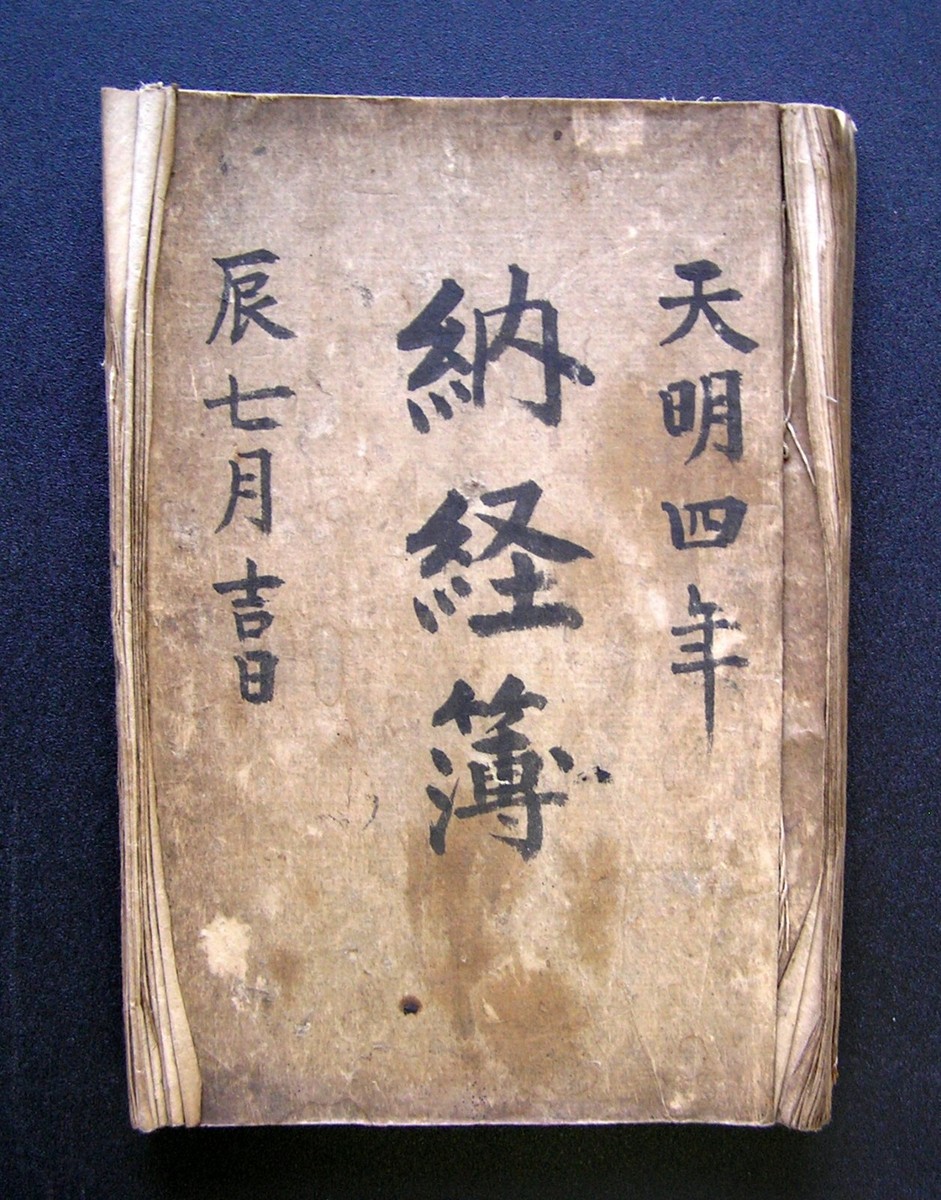 天明四年
納経簿
辰七月吉日